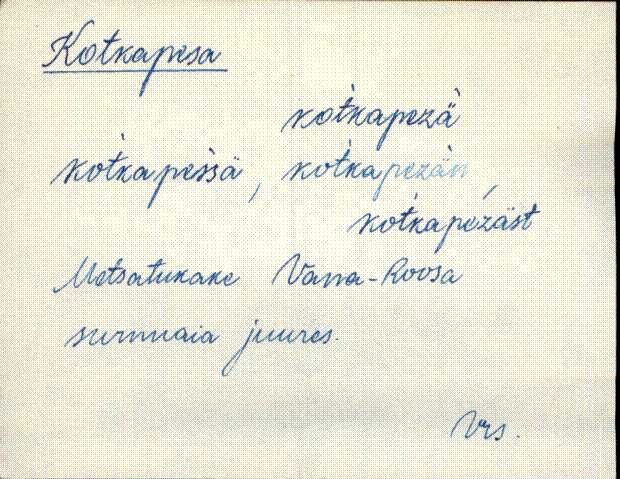 Kotkapesa
ko̍tkapezä
ko̍tkapèssä, ko̍tkapezän,
ko̍tkapezäst
Metsatukake Vana-Roosa
surnuaia juures.
Vrs.